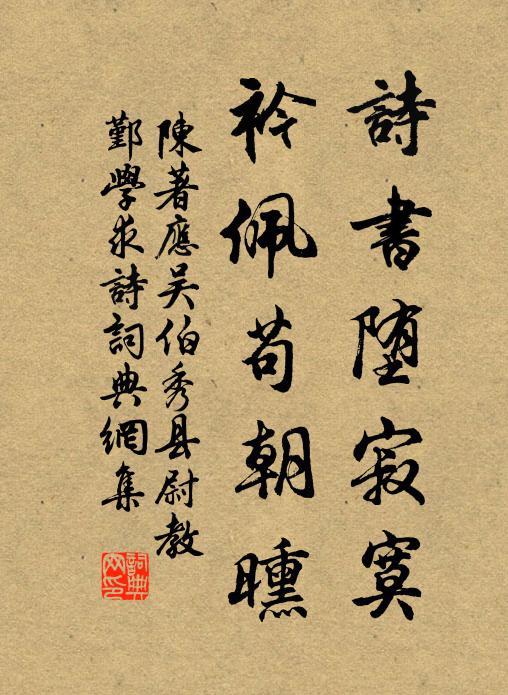 詩書堕寂寞
衿佩苟朝曛
陳著應吴伯秀县尉教
鄞學求詩詞典網集
詞典
网印